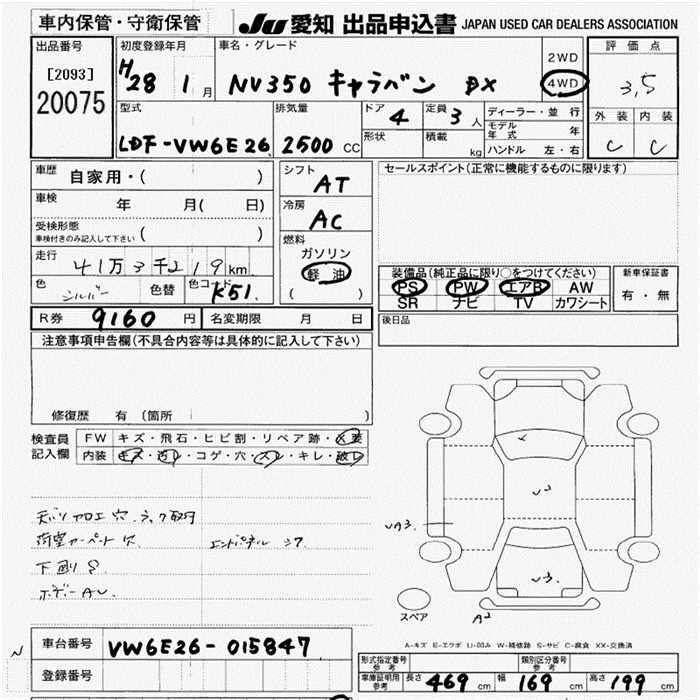 車内保管・守衛保管
JU 愛知 出品申込書 JAPAN USED CAR DEALERS ASSOCIATION
出品番号
[2093]
20075
初度登録年月
H28 1月
車名・グレード
NV350 キャラバン DX
2WD
4WD
評価点
3,5
外装 内装
C C
型式
LDF-VW6E26
排気量
2500 CC
ドア 4
形状
定員 3人
積載 kg
ディーラー・並行
モデル年式 年
ハンドル 左・右
車歴
自家用・( )
車検
年 月( 日)
受検形態
車検付きのみ記入して下さい ( )
走行
41万3千219km
色 シルバー 色替 色コード K51.
シフト
AT
冷房
AC
燃料
ガソリン
軽油
( )
セールスポイント(正常に機能するものに限ります)
装備品(純正品に限り○をつけてください)
PS PW エアB AW
SR ナビ TV カワシート
新車保証書
有・無
R券 9160円
名変期限 月 日
後日品
注意事項申告欄(不具合内容等は具体的に記入して下さい)
修復歴 有(箇所 )
検査員記入欄
FW キズ・飛石・ヒビ割・リペア跡・X要
内装 キズ・汚レ・コゲ・穴・スレ・キレ・破レ
天バリ 穴 ラック取付
荷室カーペット穴
エンドパネル
下廻りS
ボデーAU
UA3.
A2
スペア
A-キズ E-エクボ U-凹み W-補修跡 S-サビ C-腐食 XX-交換済
車台番号
VW6E26-015847
登録番号
N
形式指定番号 参考
類別区分番号 参考
車庫証明用 参考
長さ 469cm 幅 169cm 高さ 199cm